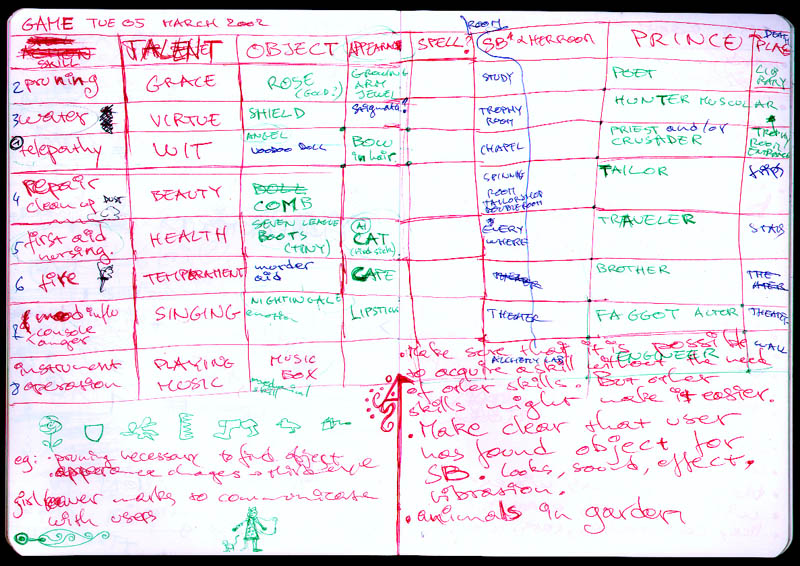 GAME TUE 05 MARCH 2002
SKILL TALENT OBJECT APPEARA SPELL? ROOM SB & HERROOM PRINCE DEATH PLAC
2 pruning GRACE ROSE (Good?) GROWING ARM JEWEL STUDY POET LIB RARY
3 water VIRTUE SHIELD TROPHY ROOM HUNTER MUSCULAR
1 telepathy WIT ANGEL VOODOO DOLL BOW in hair. CHAPEL PRIEST and/or CRUSADER TROPHY ROOM/
4 Repair clean up DUST BEAUTY DOLL COMB SPINNING ROOM TAILOR
5 first aid nursing. HEALTH SEVEN LEAGUE BOOTS (TINY) AI CAT EVERY WHERE TRAVELER STAIRS
6 fire TEMPERAMENT murder aid CAPE THEATER BROTHER THE ATER
mood influ console anger SINGING NIGHTINGALE emotion LIPSTICK THEATER FAGGOT ACTER THEATER
8 instrument operation PLAYING MUSIC MUSIC BOX mechanical skill ALCHEMY LAB ENGINEER WALL
eg: · pruning necessary to find object
· appearance changes → third eye
marks to communicate
with users
· Make sure that it is possible
to acquire a skill without the need
of other skills. But other
skills might make it easier.
· Make clear that user
has found object for
SB. looks, sound, effect,
vibration.
· animals in garden